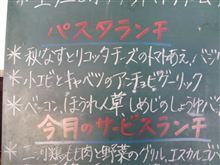 パスタランチ
＊秋なすとリコッタチーズのトマトあえ、バジ
＊小エビとキャベツのアンチョビガーリック
＊ベーコン、ほうれん草、しめじのしょうゆバ
今月のサービスランチ
もも肉と野菜のグリル、エスカルゴ